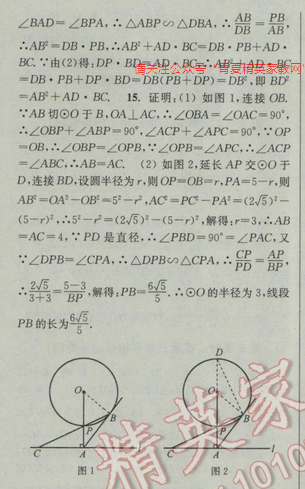 ∠BAD=∠BPA,∴△ABP∽△DBA,∴AB/DB=PB/AB,
∴AB²=DB·PB,∴AB²+AD·BC=DB·PB+AD·
BC.∵由(2)得:DP·BD=AD·BC,∴AB²+AD·BC
=DB·PB+DP·BD=DB(PB+DP)=DB²,即 BD²
=AB²+AD·BC. 15. 证明:(1) 如图1,连接 OB.
∵AB切⊙O于B,OA⊥AC,∴∠OBA=∠OAC=90°,
∴∠OBP+∠ABP=90°,∠ACP+∠APC=90°,∵OP
=OB,∴∠OBP=∠OPB,∵∠OPB=∠APC,∴∠ACP
=∠ABC,∴AB=AC. (2) 如图2,延长 AP 交⊙O于
D,连接BD,设圆半径为r,则OP=OB=r,PA=5-r,则
AB²=OA²-OB²=5²-r²,AC²=PC²-PA²=(2√5)²-
(5-r)²,∴5²-r²=(2√5)²-(5-r)²,解得:r=3,∴AB
=AC=4,∵PD是直径,∴∠PBD=90°=∠PAC,又
∵∠DPB=∠CPA,∴△DPB∽△CPA,∴CP/PD=AP/BP,
∴2√5/(3+3)=(5-3)/BP,解得:PB=6√5/5.∴⊙O的半径为3,线段
PB的长为6√5/5.
O
B
P
C
A
l
图1
D
O
B
P
C
A
l
图2
精英家
1010